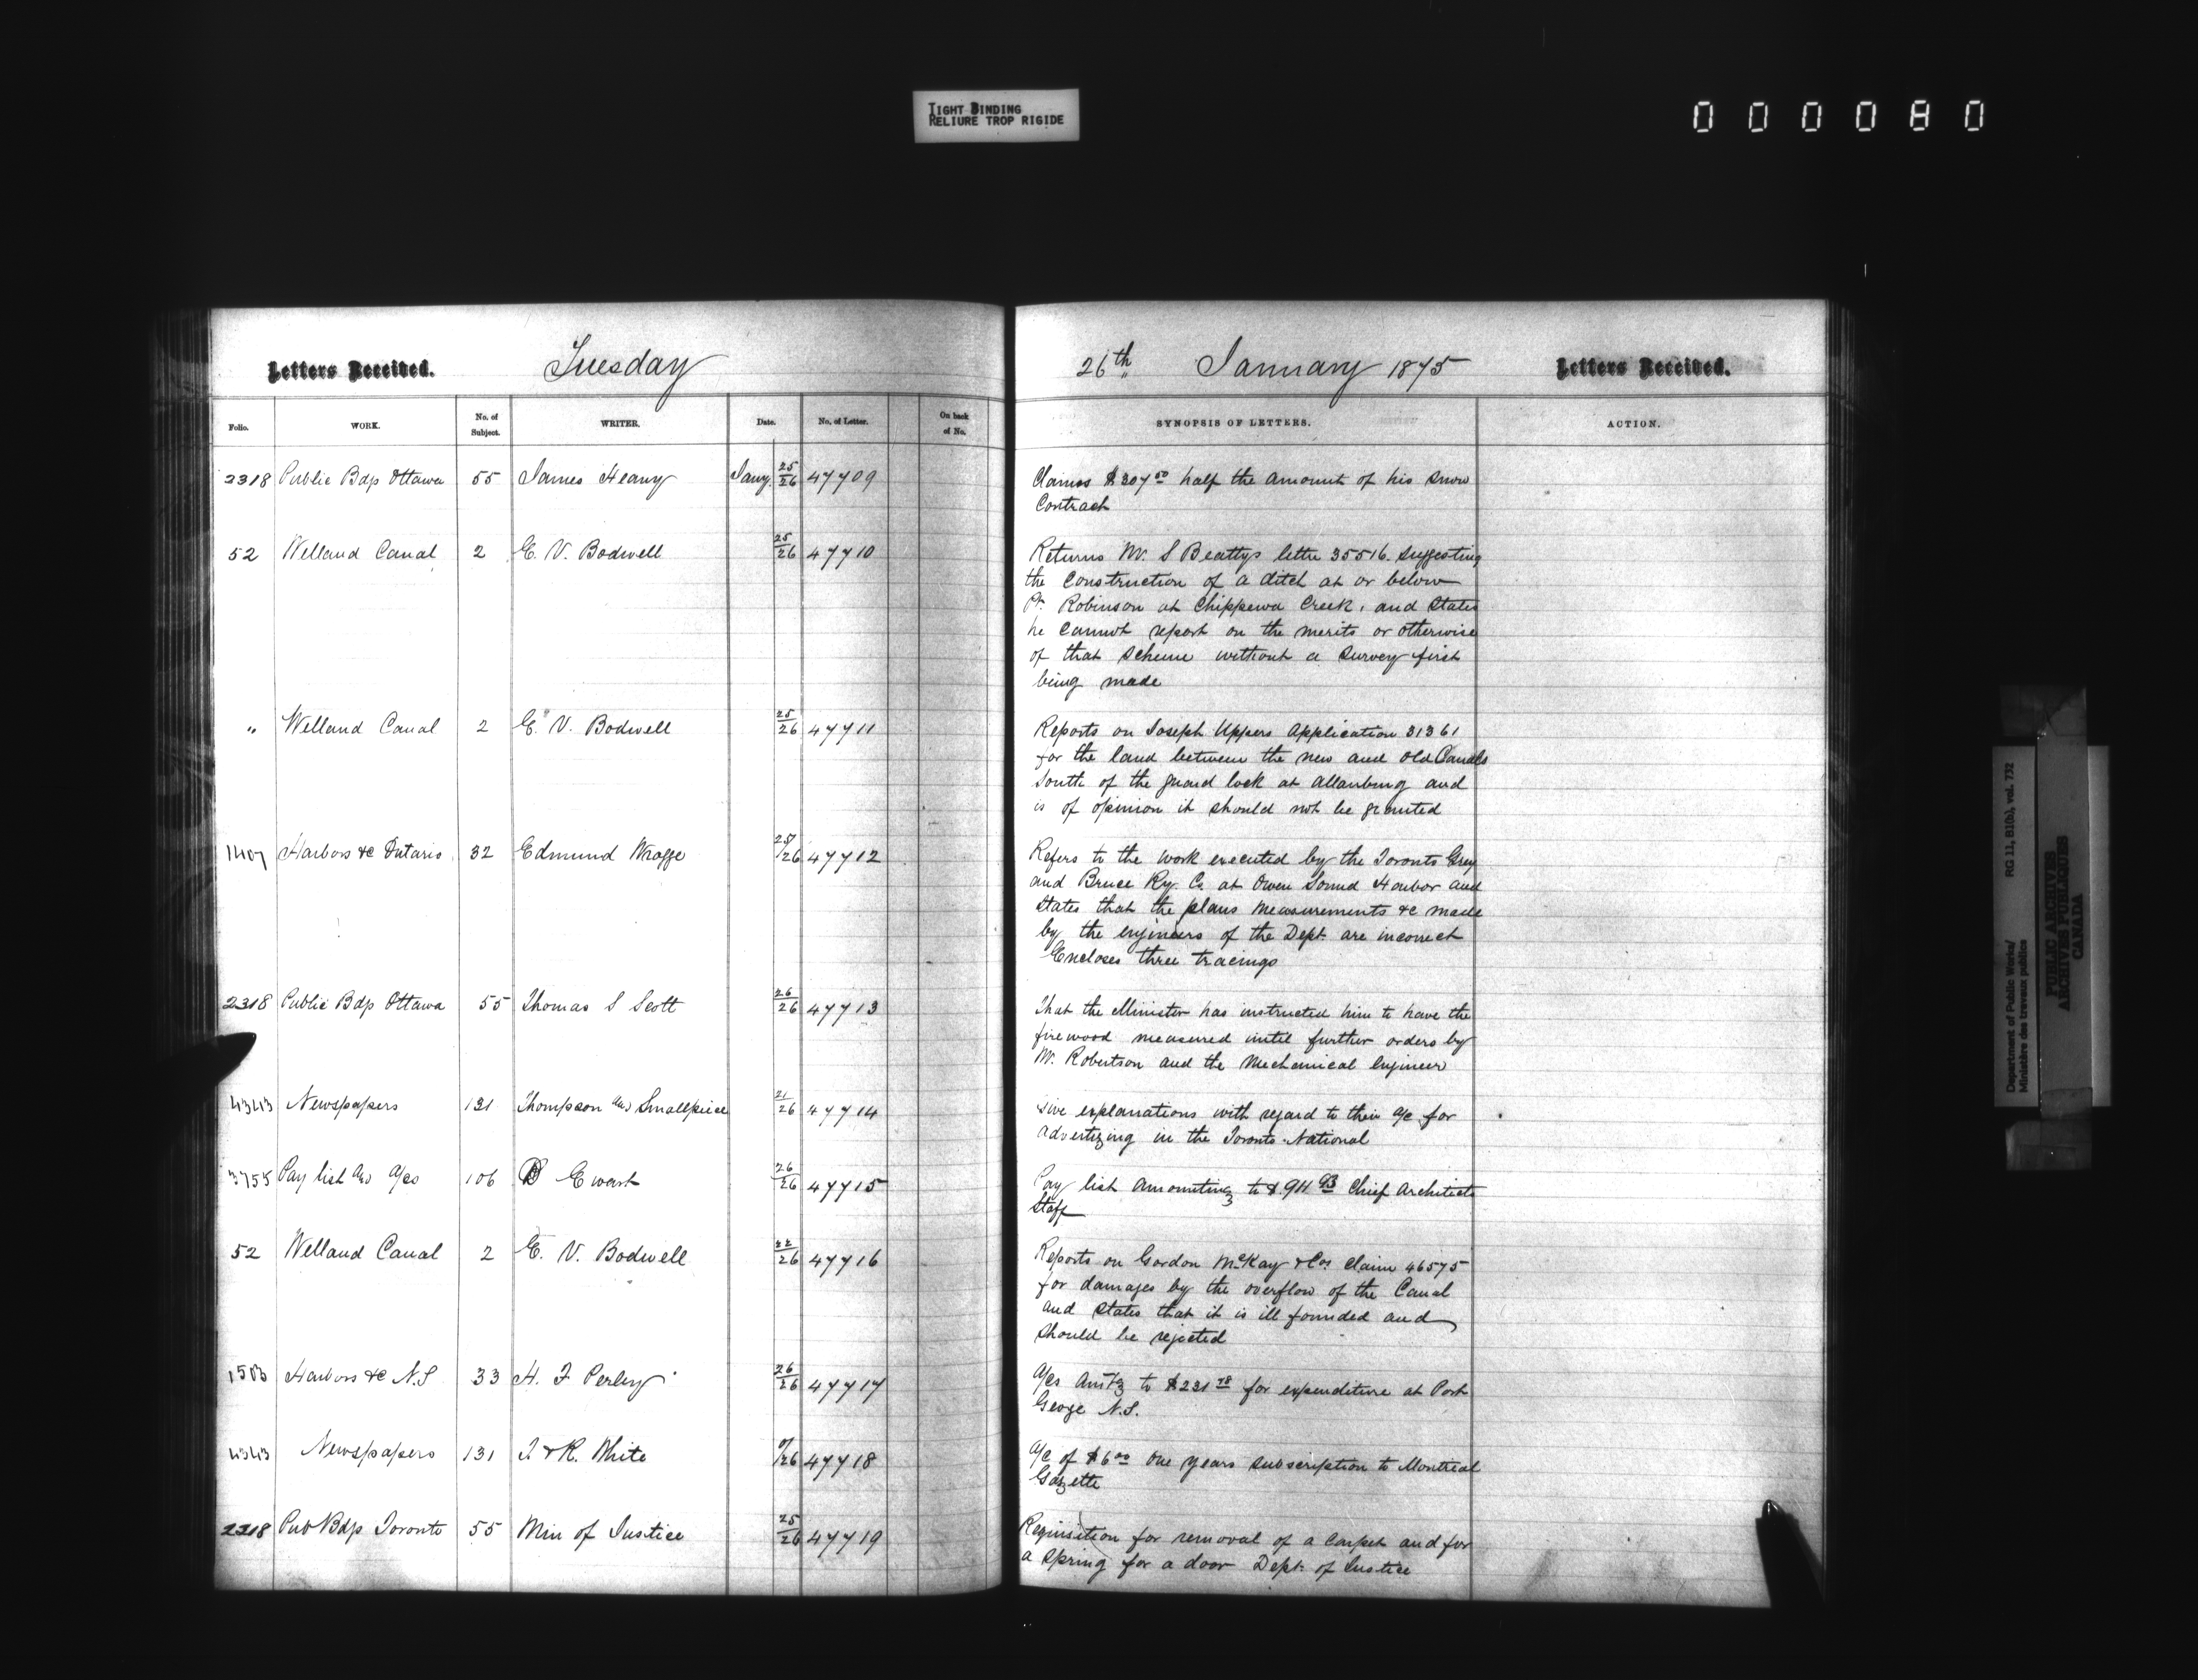 TIGHT BINDING
RELIURE TROP RIGIDE
000080
Letters Received. Tuesday
Folio. WORK. No. of Subject. WRITER. Date. No. of Letter. On back of No.
2318 Public Bdgs Ottawa 55 James Heany Jany. 25/26 47709
52 Welland Canal 2 E. V. Bodwell 25/26 47710
" Welland Canal 2 E. V. Bodwell 25/26 47711
1407 Harbors &c Ontario 32 Edmund Wragge 25/26 47712
2318 Public Bdgs Ottawa 55 Thomas S Scott 26/26 47713
4343 Newspapers 131 Thompson and Smallpiece 21/26 47714
3755 Pay list and a/cs 106 D Ewart 26/26 47715
52 Welland Canal 2 E. V. Bodwell 22/26 47716
1503 Harbors &c N.S 33 H. F Perley 26/26 47717
4343 Newspapers 131 T & R. White /26 47718
2318 Pub Bdgs Toronto 55 Min of Justice 25/26 47719
26th January 1875 Letters Received.
SYNOPSIS OF LETTERS. ACTION.
Claims $307 50 half the amount of his snow
Contract
Returns Mr. S Beattys letter 35516. suggesting
the construction of a ditch at or below
Pt. Robinson at Chippewa Creek, and states
he cannot report on the merits or otherwise
of that scheme without a survey first
being made
Reports on Joseph Uppers application 31361
for the land between the new and old Canals
South of the guard lock at Allanburg and
is of opinion it should not be granted
Refers to the work executed by the Toronto Grey
and Bruce Ry. Co. at Owen Sound Harbor and
states that the plans measurements &c made
by the engineers of the Dept. are incorrect
Encloses three tracings
That the Minister has instructed him to have the
firewood measured until further orders by
Mr. Robertson and the Mechanical Engineer
Give explanations with regard to their a/c for
advertizing in the Toronto National
Pay list amounting to $911 93 Chief Architects
Staff
Reports on Gordon McKay & Cos claim 46575
for damages by the overflow of the Canal
and states that it is ill founded and
should be rejected
A/cs Amtg to $231 78 for expenditure at Port
George N.S.
A/c of $6 00 One years subscription to Montreal
Gazette
Requisition for removal of a carpet and for
a spring for a door Dept. of Justice
Department of Public Works/ RG 11, B1(b), vol. 732
Ministère des travaux publics
PUBLIC ARCHIVES
ARCHIVES PUBLIQUES
CANADA